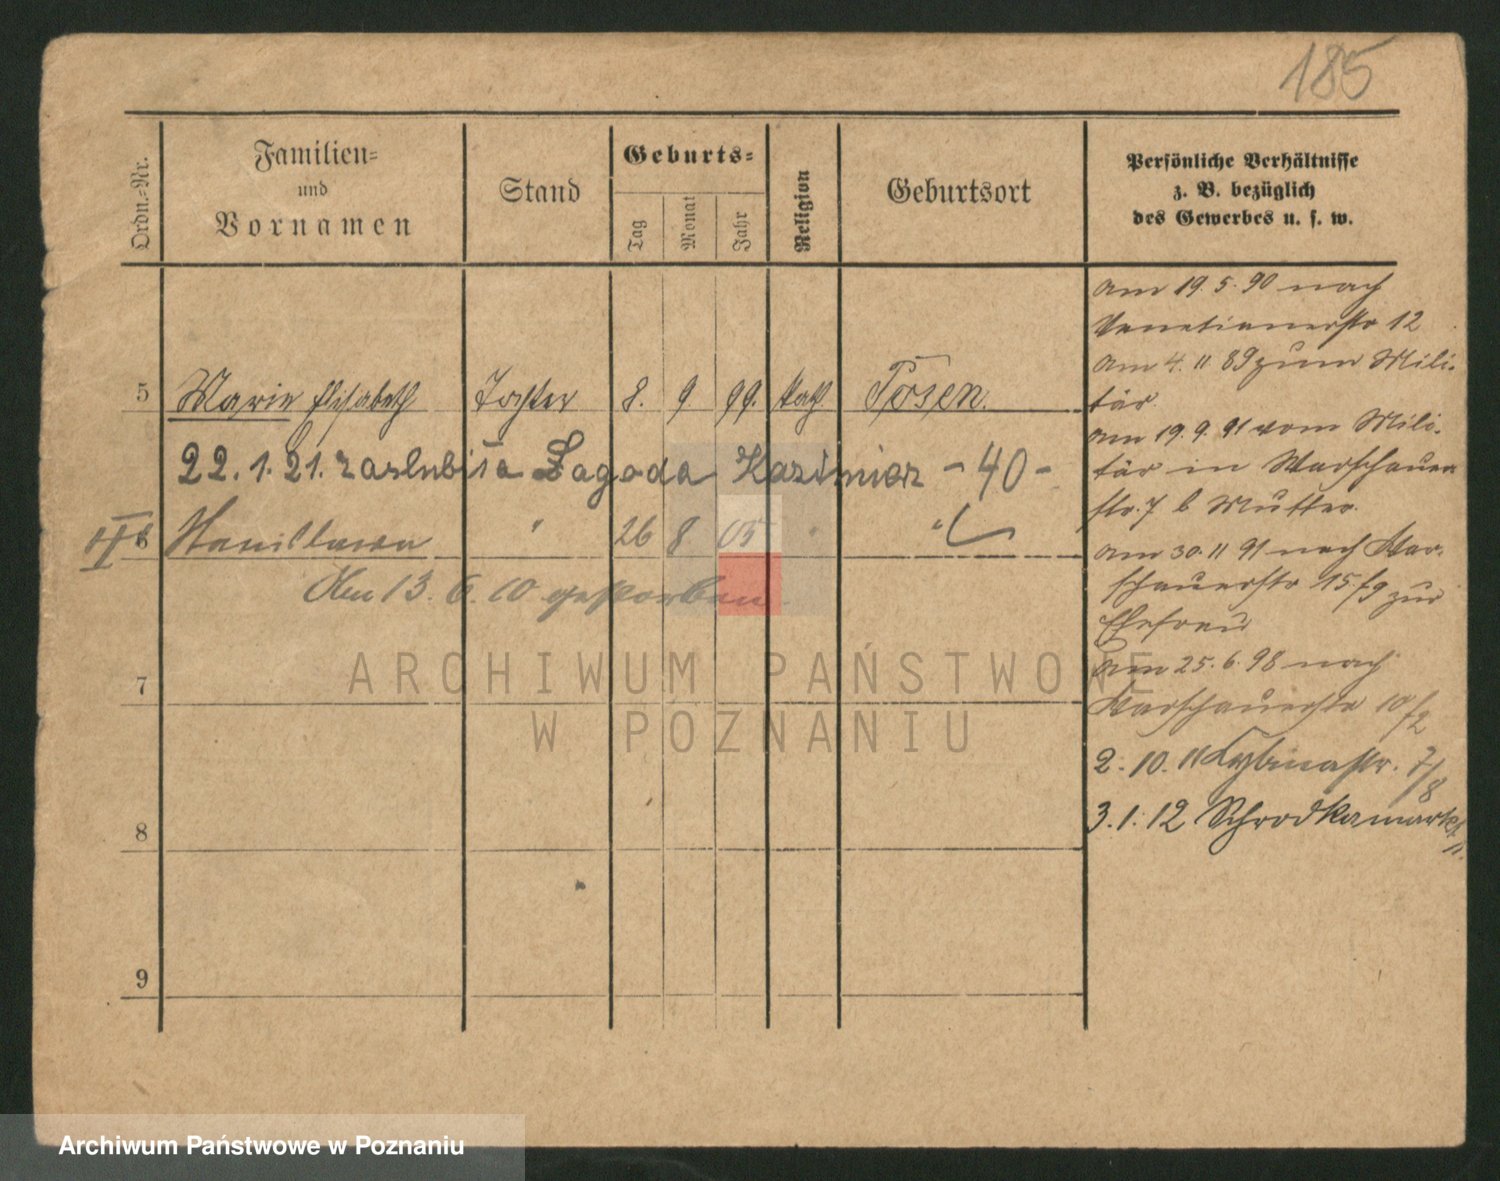 185
Ordn.-Nr.
Familien-
und
Vornamen
Stand
Geburts-
Tag
Monat
Jahr
Religion
Geburtsort
Persönliche Verhältnisse
z. B. bezüglich
des Gewerbes u. s. w.
5 Marie Elisabeth Tochter 8. 9. 99. kath Posen.
22.1.21. zaślubiła Łagoda Kazimierz - 40 -
6 Stanislawa " 26 8 05 " "
Am 13. 6. 10 gestorben.
7
8
9
am 19. 5. 90 nach
Venetianerstr 12
am 4. 11 89 zum Mili-
tär.
am 19. 9. 91 vom Mili-
tär in Warschauer
str. 7 b Mutter.
am 30. 11 91 nach War-
schauerstr 15/9 zur
Ehefrau
am 25. 6. 98 nach
Warschauerstr 10/2
2. 10. 11 Cybinastr. 7/8
3. 1. 12 Schrodkamarkt
11.
ARCHIWUM PAŃSTWOWE
W POZNANIU
Archiwum Państwowe w Poznaniu